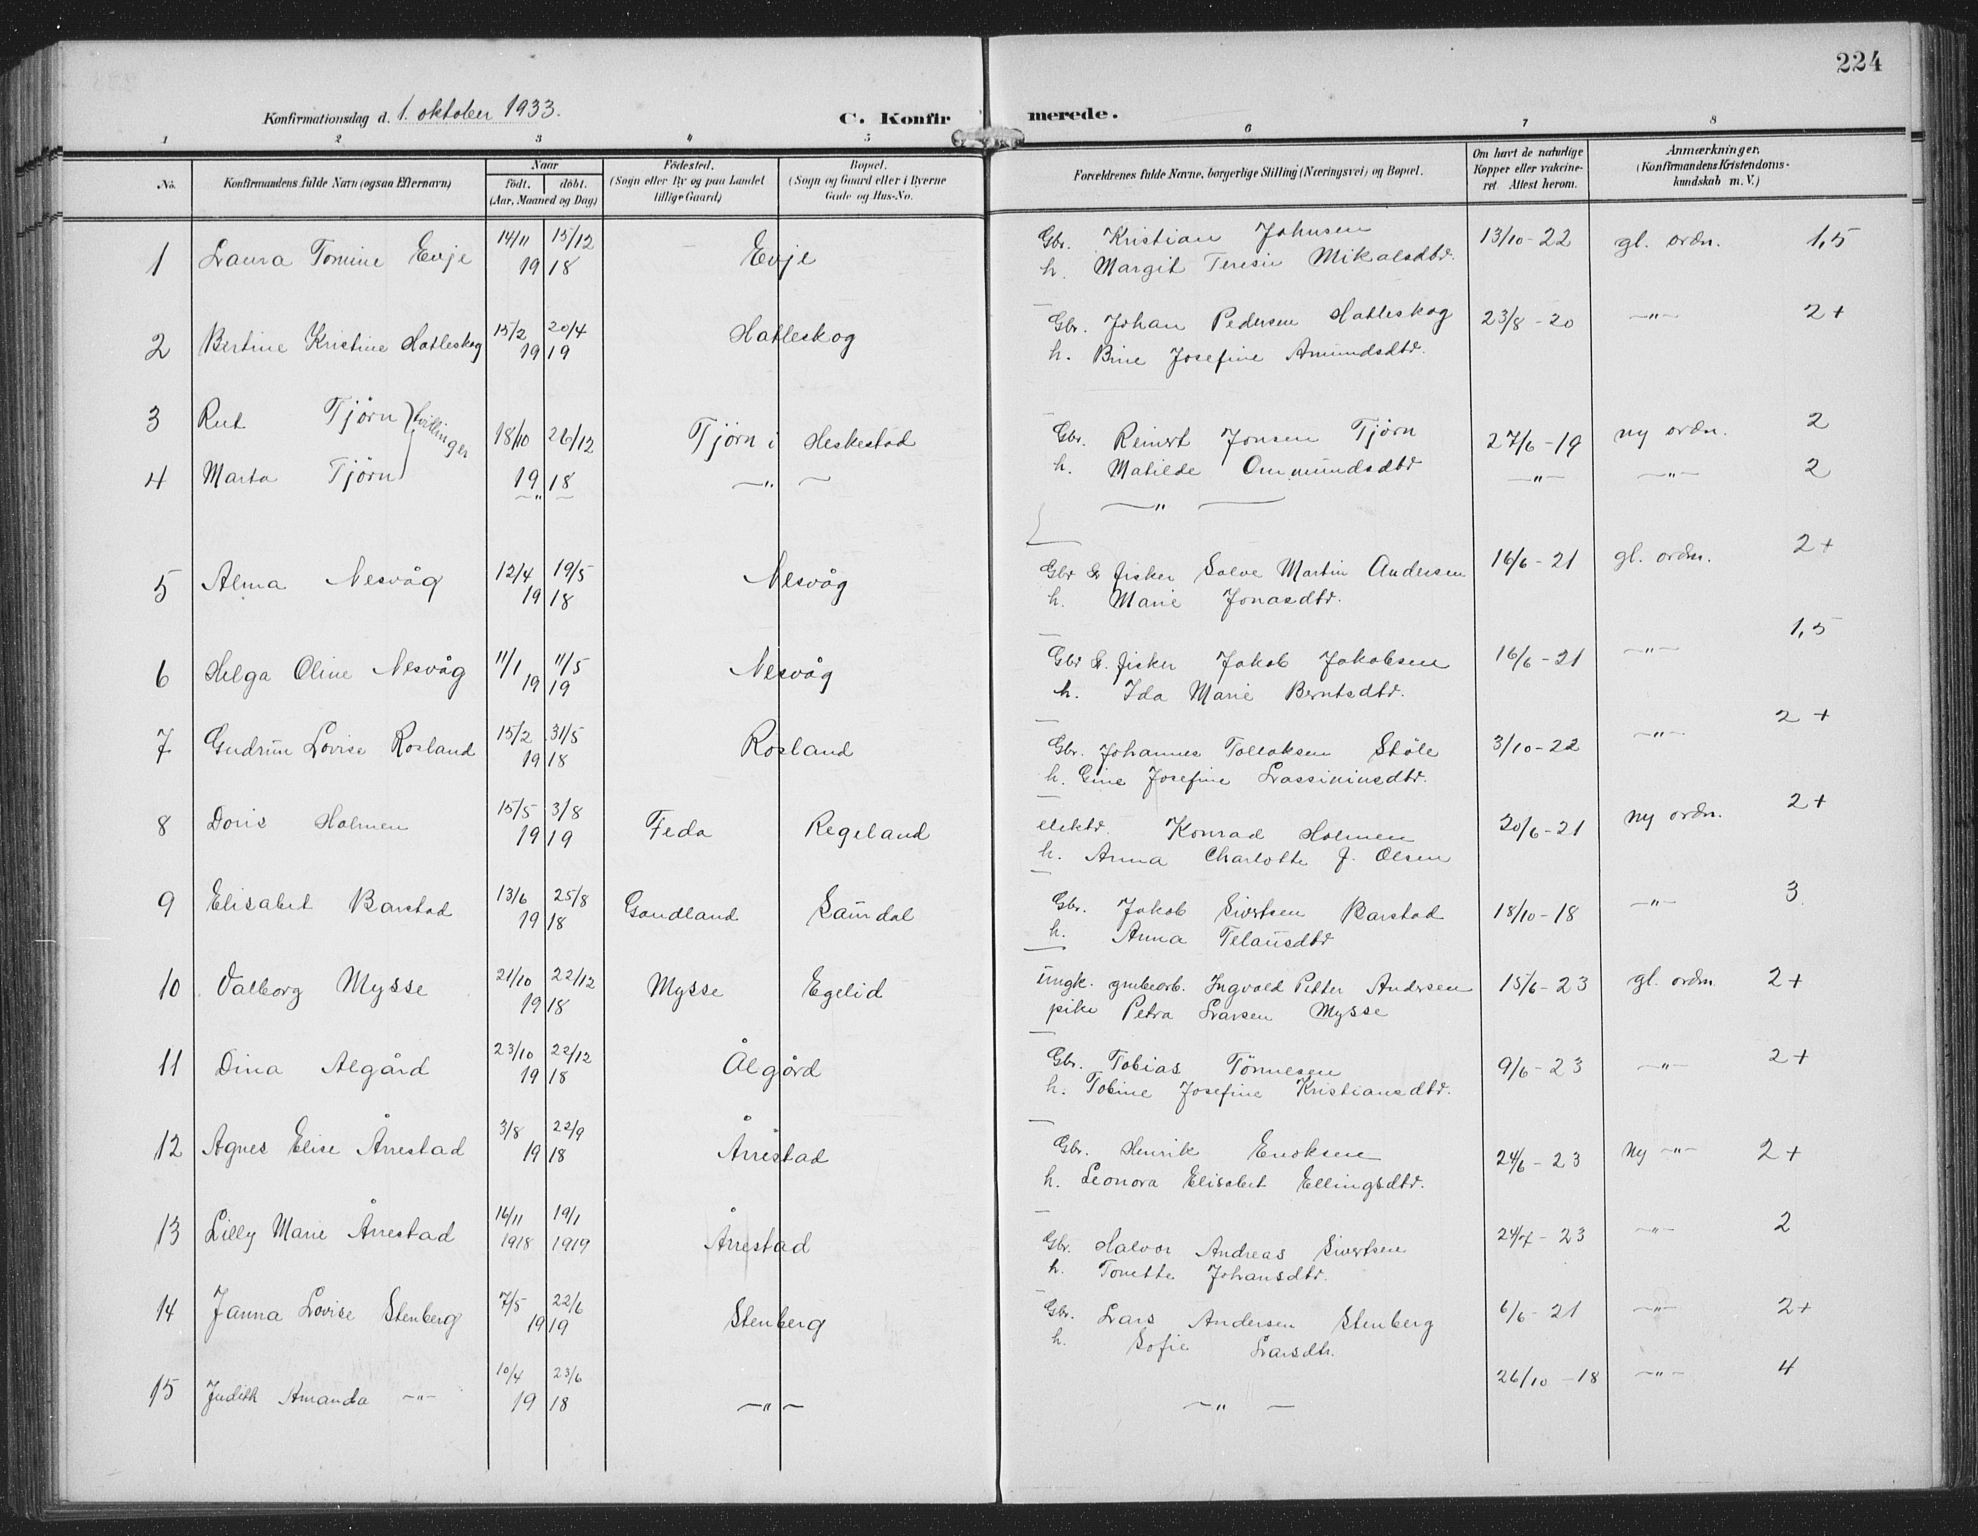 224
Konfirmationsdag d. 1. oktober 1933.
C. Konfirmerede.
1 2 3 4 5 6 7 8
No.
Konfirmandens fulde Navn (ogsaa Efternavn)
Naar
født. døbt.
(Aar, Maaned og Dag)
Fødested.
(Sogn eller By og paa Landet
tillige Gaard)
Bopæl.
(Sogn og Gaard eller i Byerne
Gade og Hus-No.
Forældrenes fulde Navne, borgerlige Stilling (Næringsvei) og Bopæl.
Om havt de naturlige
Kopper eller vakcine-
ret. Attest herom.
Anmærkninger,
(Konfirmandens Kristendoms-
kundskab m. V.)
1 Laura Tomine Evje 14/11 15/12 1918 Evje Gbr. Kristian Johnsen 13/10-22 gl. ordn. 1,5
h. Margit Teresie Mikalsdtr.
2 Bertine Kristine Hatleskog 15/2 20/4 1919 Hatleskog Gbr. Johan Pedersen Hatleskog 23/8-20 -"- 2+
h. Bine Josefine Amundsdtr.
3 Rut Tjørn } tvillinger 18/10 26/12 1918 Tjørn i Heskestad Gbr. Reinert Jonsen Tjørn 27/6-19 ny ordn. 2
h. Matilde Ommundsdtr
4 Marta Tjørn -"- -"- -"- -"- -"- 2
5 Alma Nesvåg 12/4 19/5 1918 Nesvåg Gbr & fisker Salve Martin Andersen 16/6-21 gl. ordn. 2+
h. Marie Jonasdtr.
6 Helga Oline Nesvåg 11/1 11/5 1919 Nesvåg Gbr & fisker Jakob Jakobsen 16/6-21 -"- 1,5
h. Ida Marie Berntsdtr.
7 Gudrun Lovise Rosland 15/2 31/5 1918 Rosland Gbr. Johannes Tollaksen Støle 3/10-22 -"- 2+
h. Gine Josefine Lassiniusdtr.
8 Doris Holmen 15/5 3/8 1919 Feda Regeland elektr. Konrad Holmen 20/6-21 ny ordn. 2+
h. Anna Charlotte J. Olsen
9 Elisabet Barstad 13/6 25/8 1918 Gaudland Saurdal Gbr. Jakob Sivertsen Barstad 18/10-18 -"- 3
h. Anna Telausdtr
10 Valborg Mysse 21/10 22/12 1918 Mysse Egelid ungk. grubearb. Ingvald Petter Andersen 15/6-23 gl. ordn. 2+
pike Petra Larsen Mysse
11 Dina Algård 23/10 22/12 1918 Ålgård Gbr. Tobias Tønnesen 9/6-23 -"- 2+
h. Tobine Josefine Kristiansdtr.
12 Agnes Elise Årrestad 3/8 22/9 1918 Årrestad Gbr. Henrik Enoksen 24/6-23 ny -"- 2+
h. Leonora Elisabet Ellingsdtr.
13 Lilly Marie Årrestad 16/11 1918 19/1 1919 Årrestad Gbr. Halvor Andreas Sivertsen 24/7-23 -"- 2
h. Tonette Johansdtr.
14 Janna Lovise Stenberg 7/5 22/6 1919 Stenberg Gbr. Lars Andersen Stenberg 6/6-21 -"- 2+
h. Sofie Larsdtr.
15 Judith Amanda -"- 10/4 23/6 1918 -"- -"- 26/10-18 -"- 4